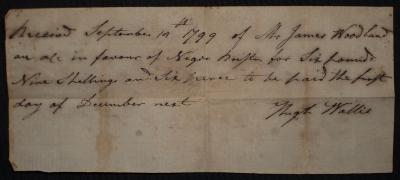 Received September 12th 1799 of Mr James Woodland
an ac in favour of Negro Buston for Six pounds
Nine Shillings and Six pence to be paid the first
day of December next
Hugh Wallis